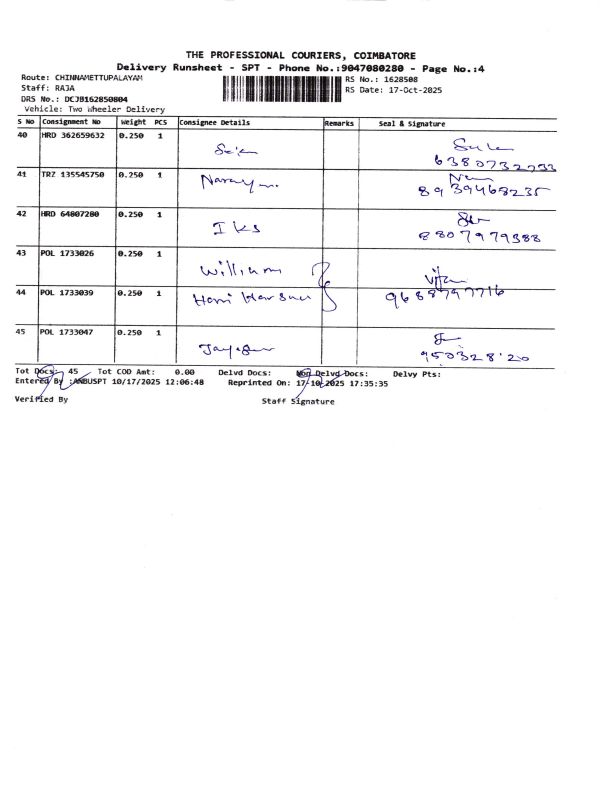 THE PROFESSIONAL COURIERS, COIMBATORE
Delivery Runsheet - SPT - Phone No.:9047080280 - Page No.:4
Route: CHINNAMETTUPALAYAM
RS No.: 1628508
Staff: RAJA
RS Date: 17-Oct-2025
DRS No.: DCJB162850804
Vehicle: Two Wheeler Delivery
S No Consignment No Weight PCS Consignee Details Remarks Seal & Signature
40 HRD 362659632 0.250 1
6380732733
41 TRZ 135545750 0.250 1
8939468235
42 HRD 64807280 0.250 1
IKS 8807979388
43 POL 1733026 0.250 1
William
44 POL 1733039 0.250 1
9688797716
45 POL 1733047 0.250 1
Tot Docs: 45 Tot COD Amt: 0.00 Delvd Docs: Non Delvd Docs: Delvy Pts:
Entered By :ANBUSPT 10/17/2025 12:06:48 Reprinted On: 17-10-2025 17:35:35
Verified By Staff Signature